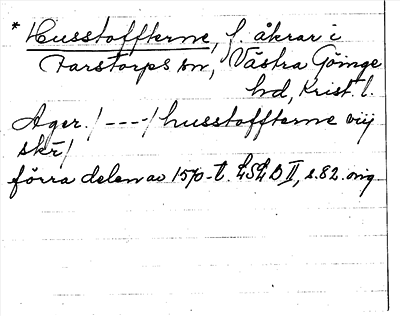 * Husstoffterne, f. åkrar i
Farstorps sn, Västra Göinge
hd, Krist. l.
Ager. / ---- / husstoffterne viij
skr /
förra delen av 1570-t. LSLB II, s. 82. orig.